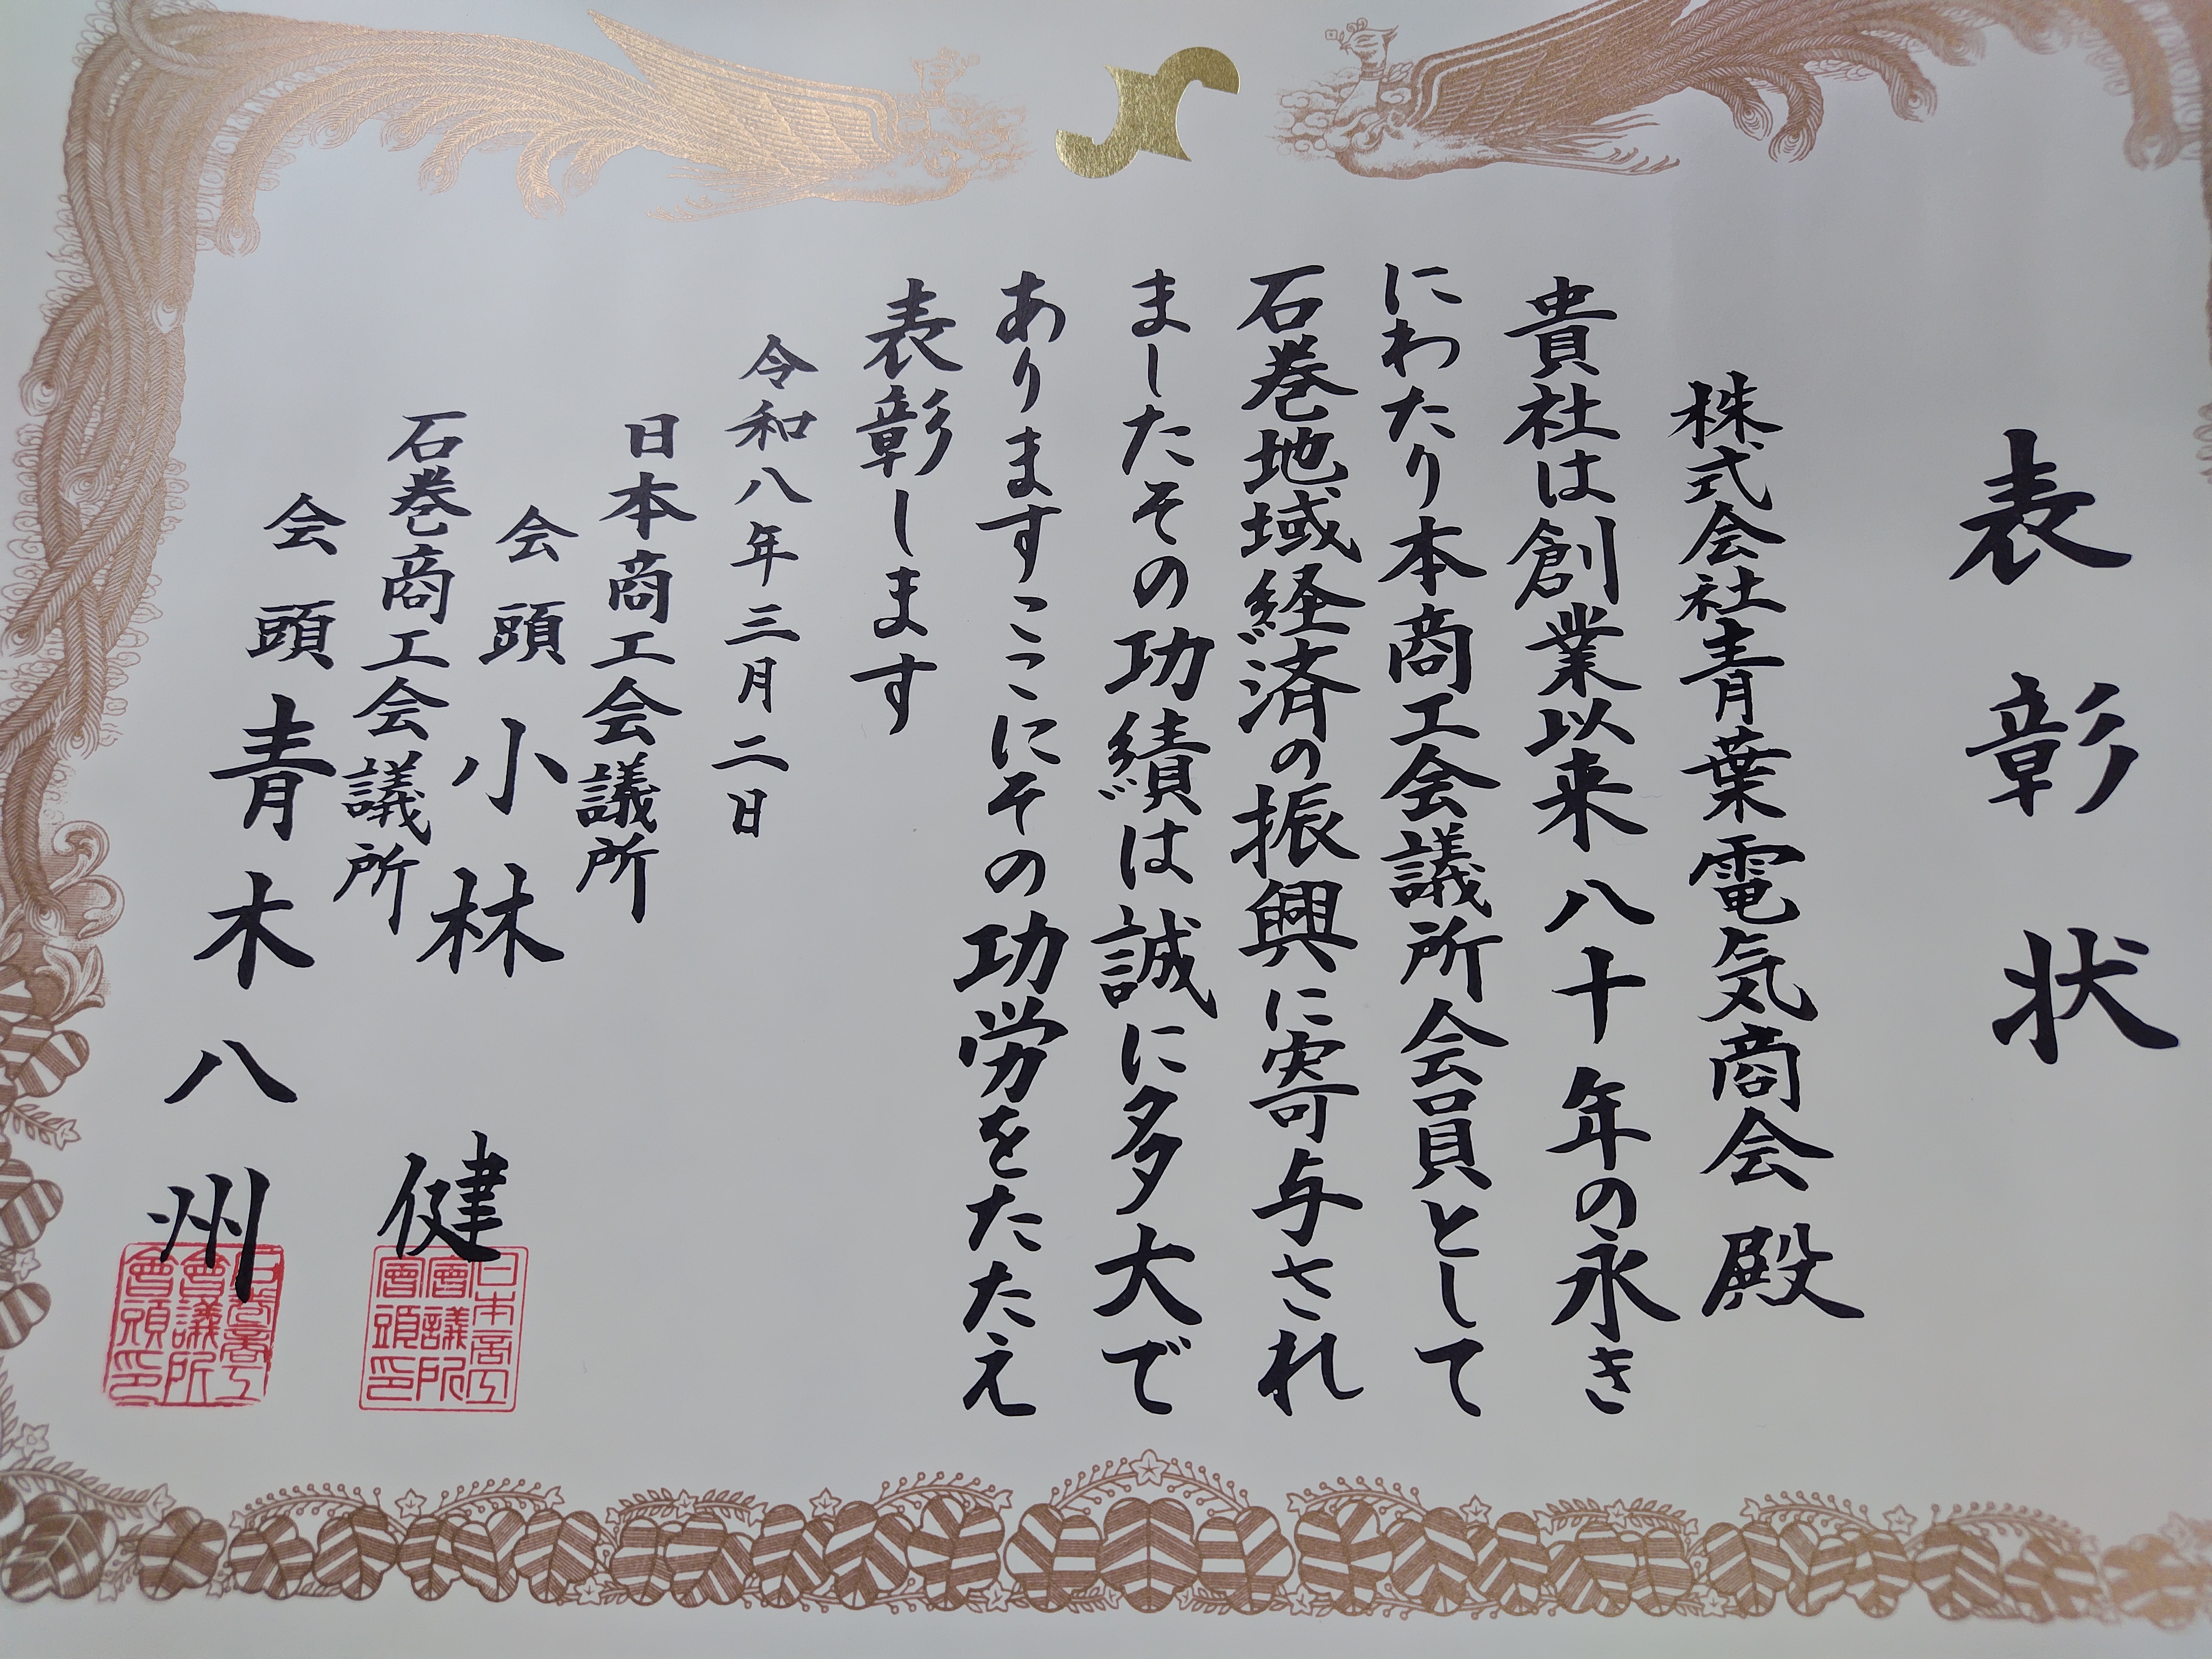 表彰状
株式会社青葉電気商会 殿
貴社は創業以来八十年の永き
にわたり本商工会議所会員として
石巻地域経済の振興に寄与され
ましたその功績は誠に多大で
ありますここにその功労をたたえ
表彰します
令和八年三月二日
日本商工会議所
会頭 小林 健
石巻商工会議所
会頭 青木八州
日本商工
會議所
會頭印
石巻商工
會議所
會頭印